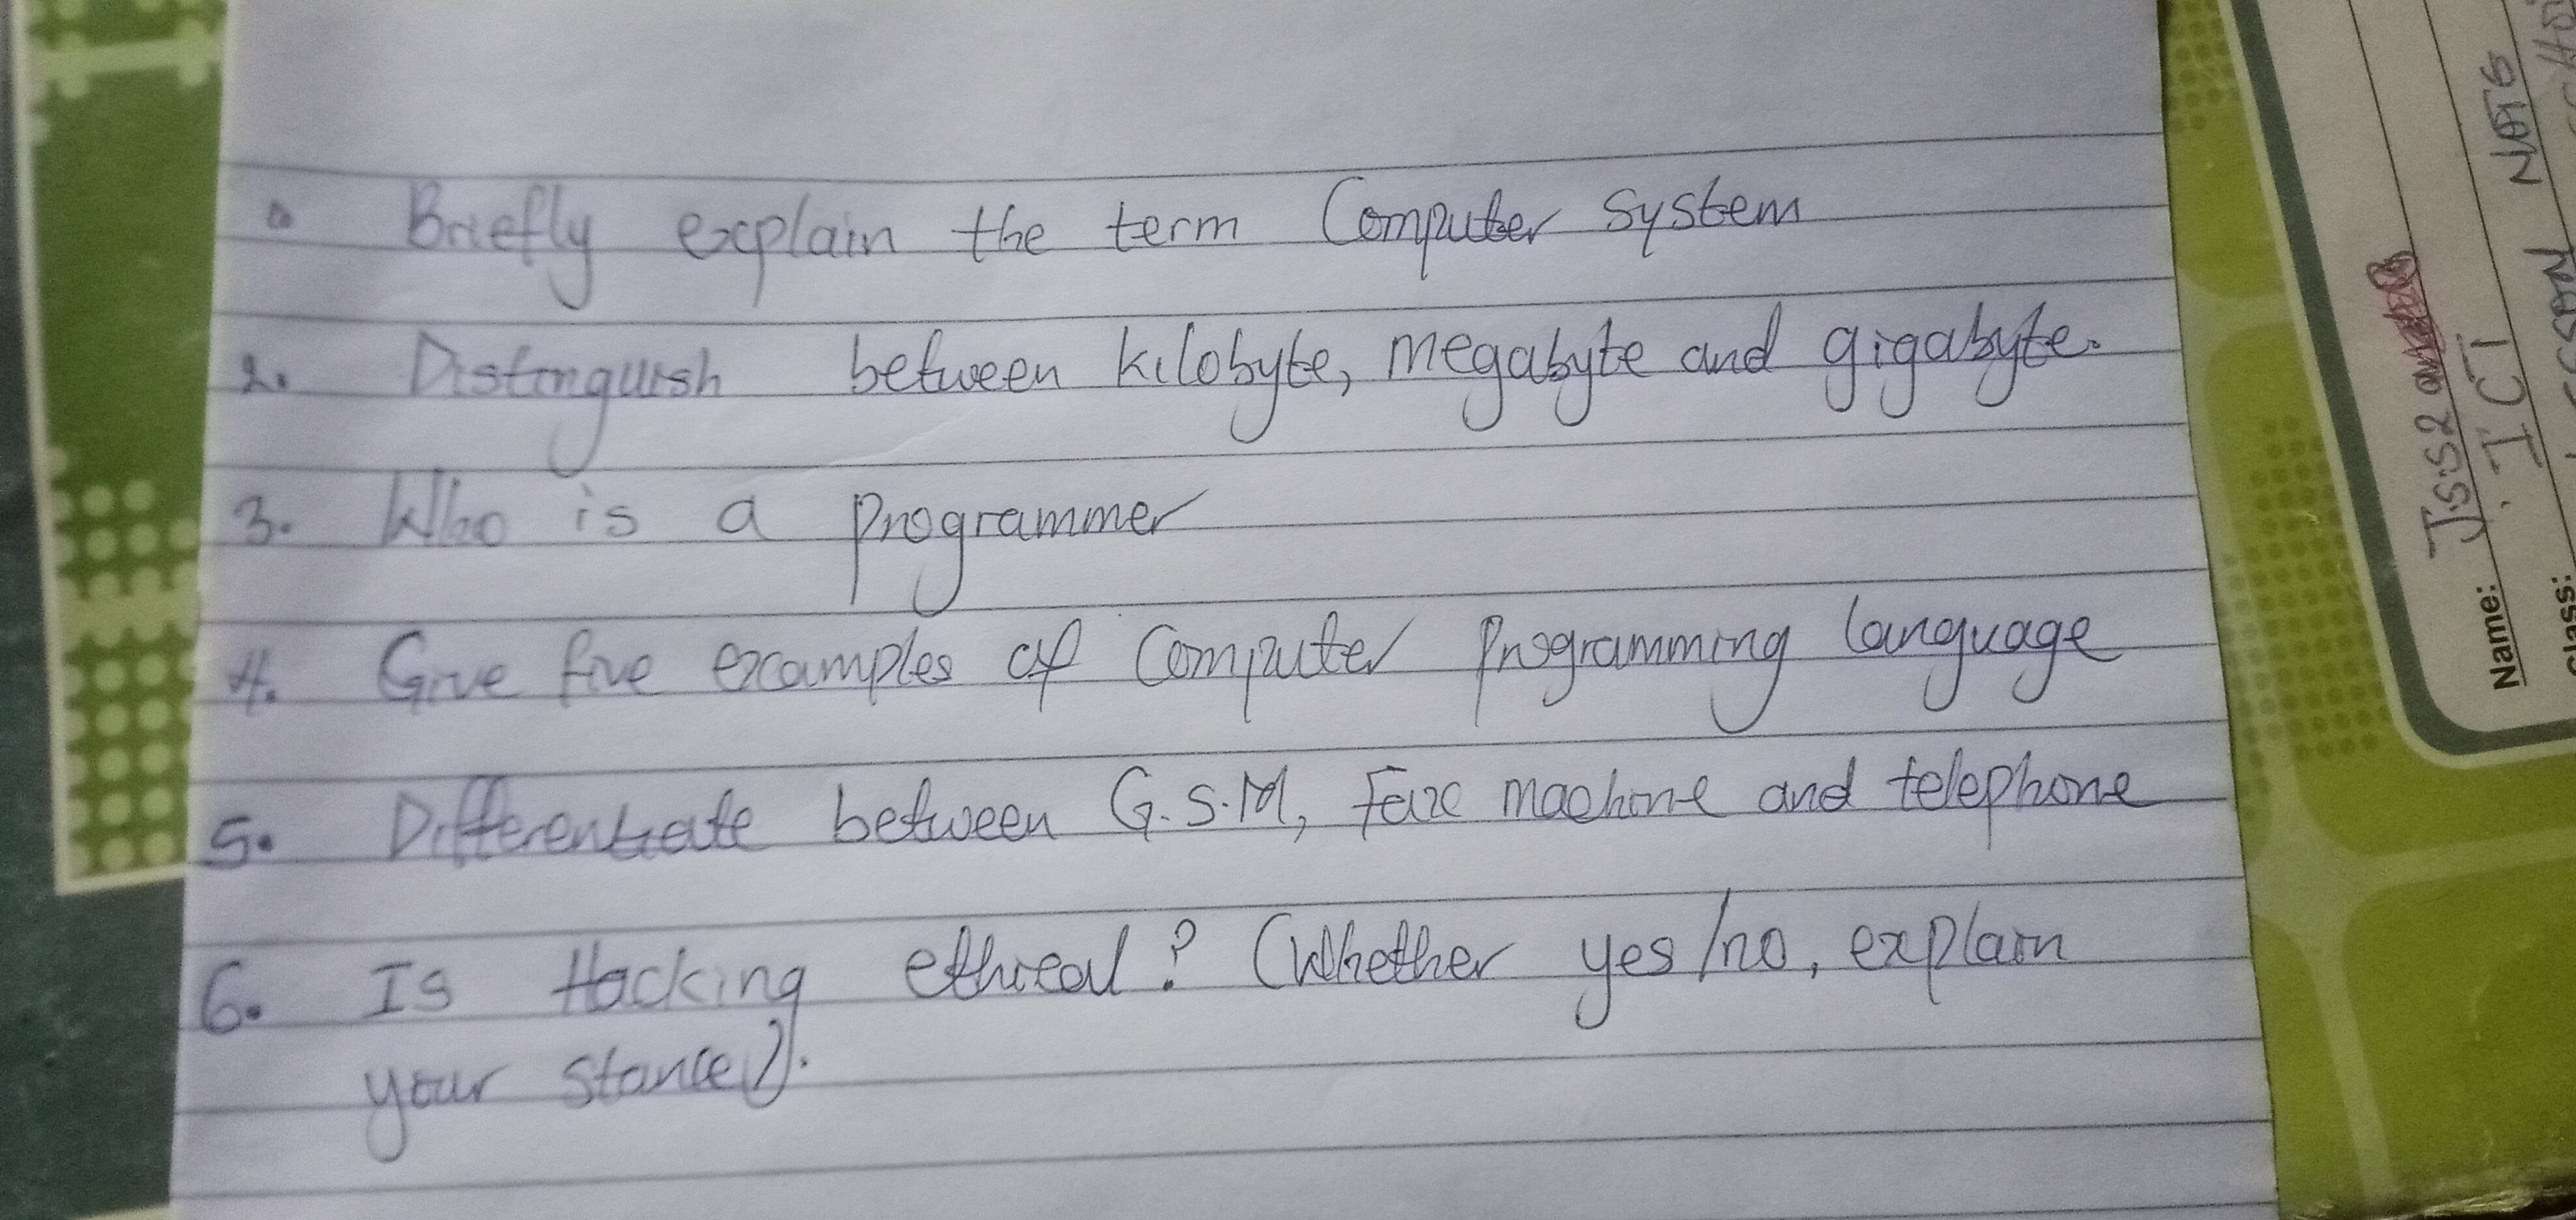 1. Briefly explain the term Computer system
2. Distinguish between kilobyte, megabyte and gigabyte.
3. Who is a programmer
4. Give five examples of Computer Programming language
5. Differentiate between G.S.M, Fax machine and telephone
6. Is Hacking ethical? (Whether yes/no, explain
your stance).
Name: J.S.S2
ICT
Class: NOTE